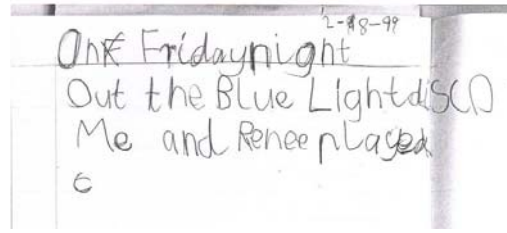 2-18-99
On Fridaynight
Out the Blue Light disco
Me and Renee played
c